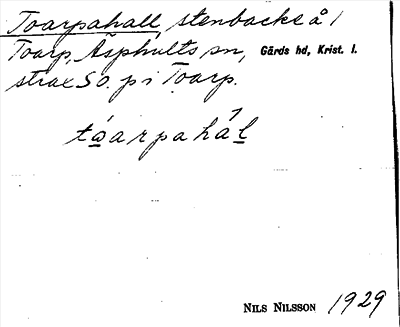 Toarpahall, stenbacke å /
Toarp, Äsphults sn, Gärds hd, Krist. l.
strax SO. p i Toarp.
tóarpahál
NILS NILSSON 1929